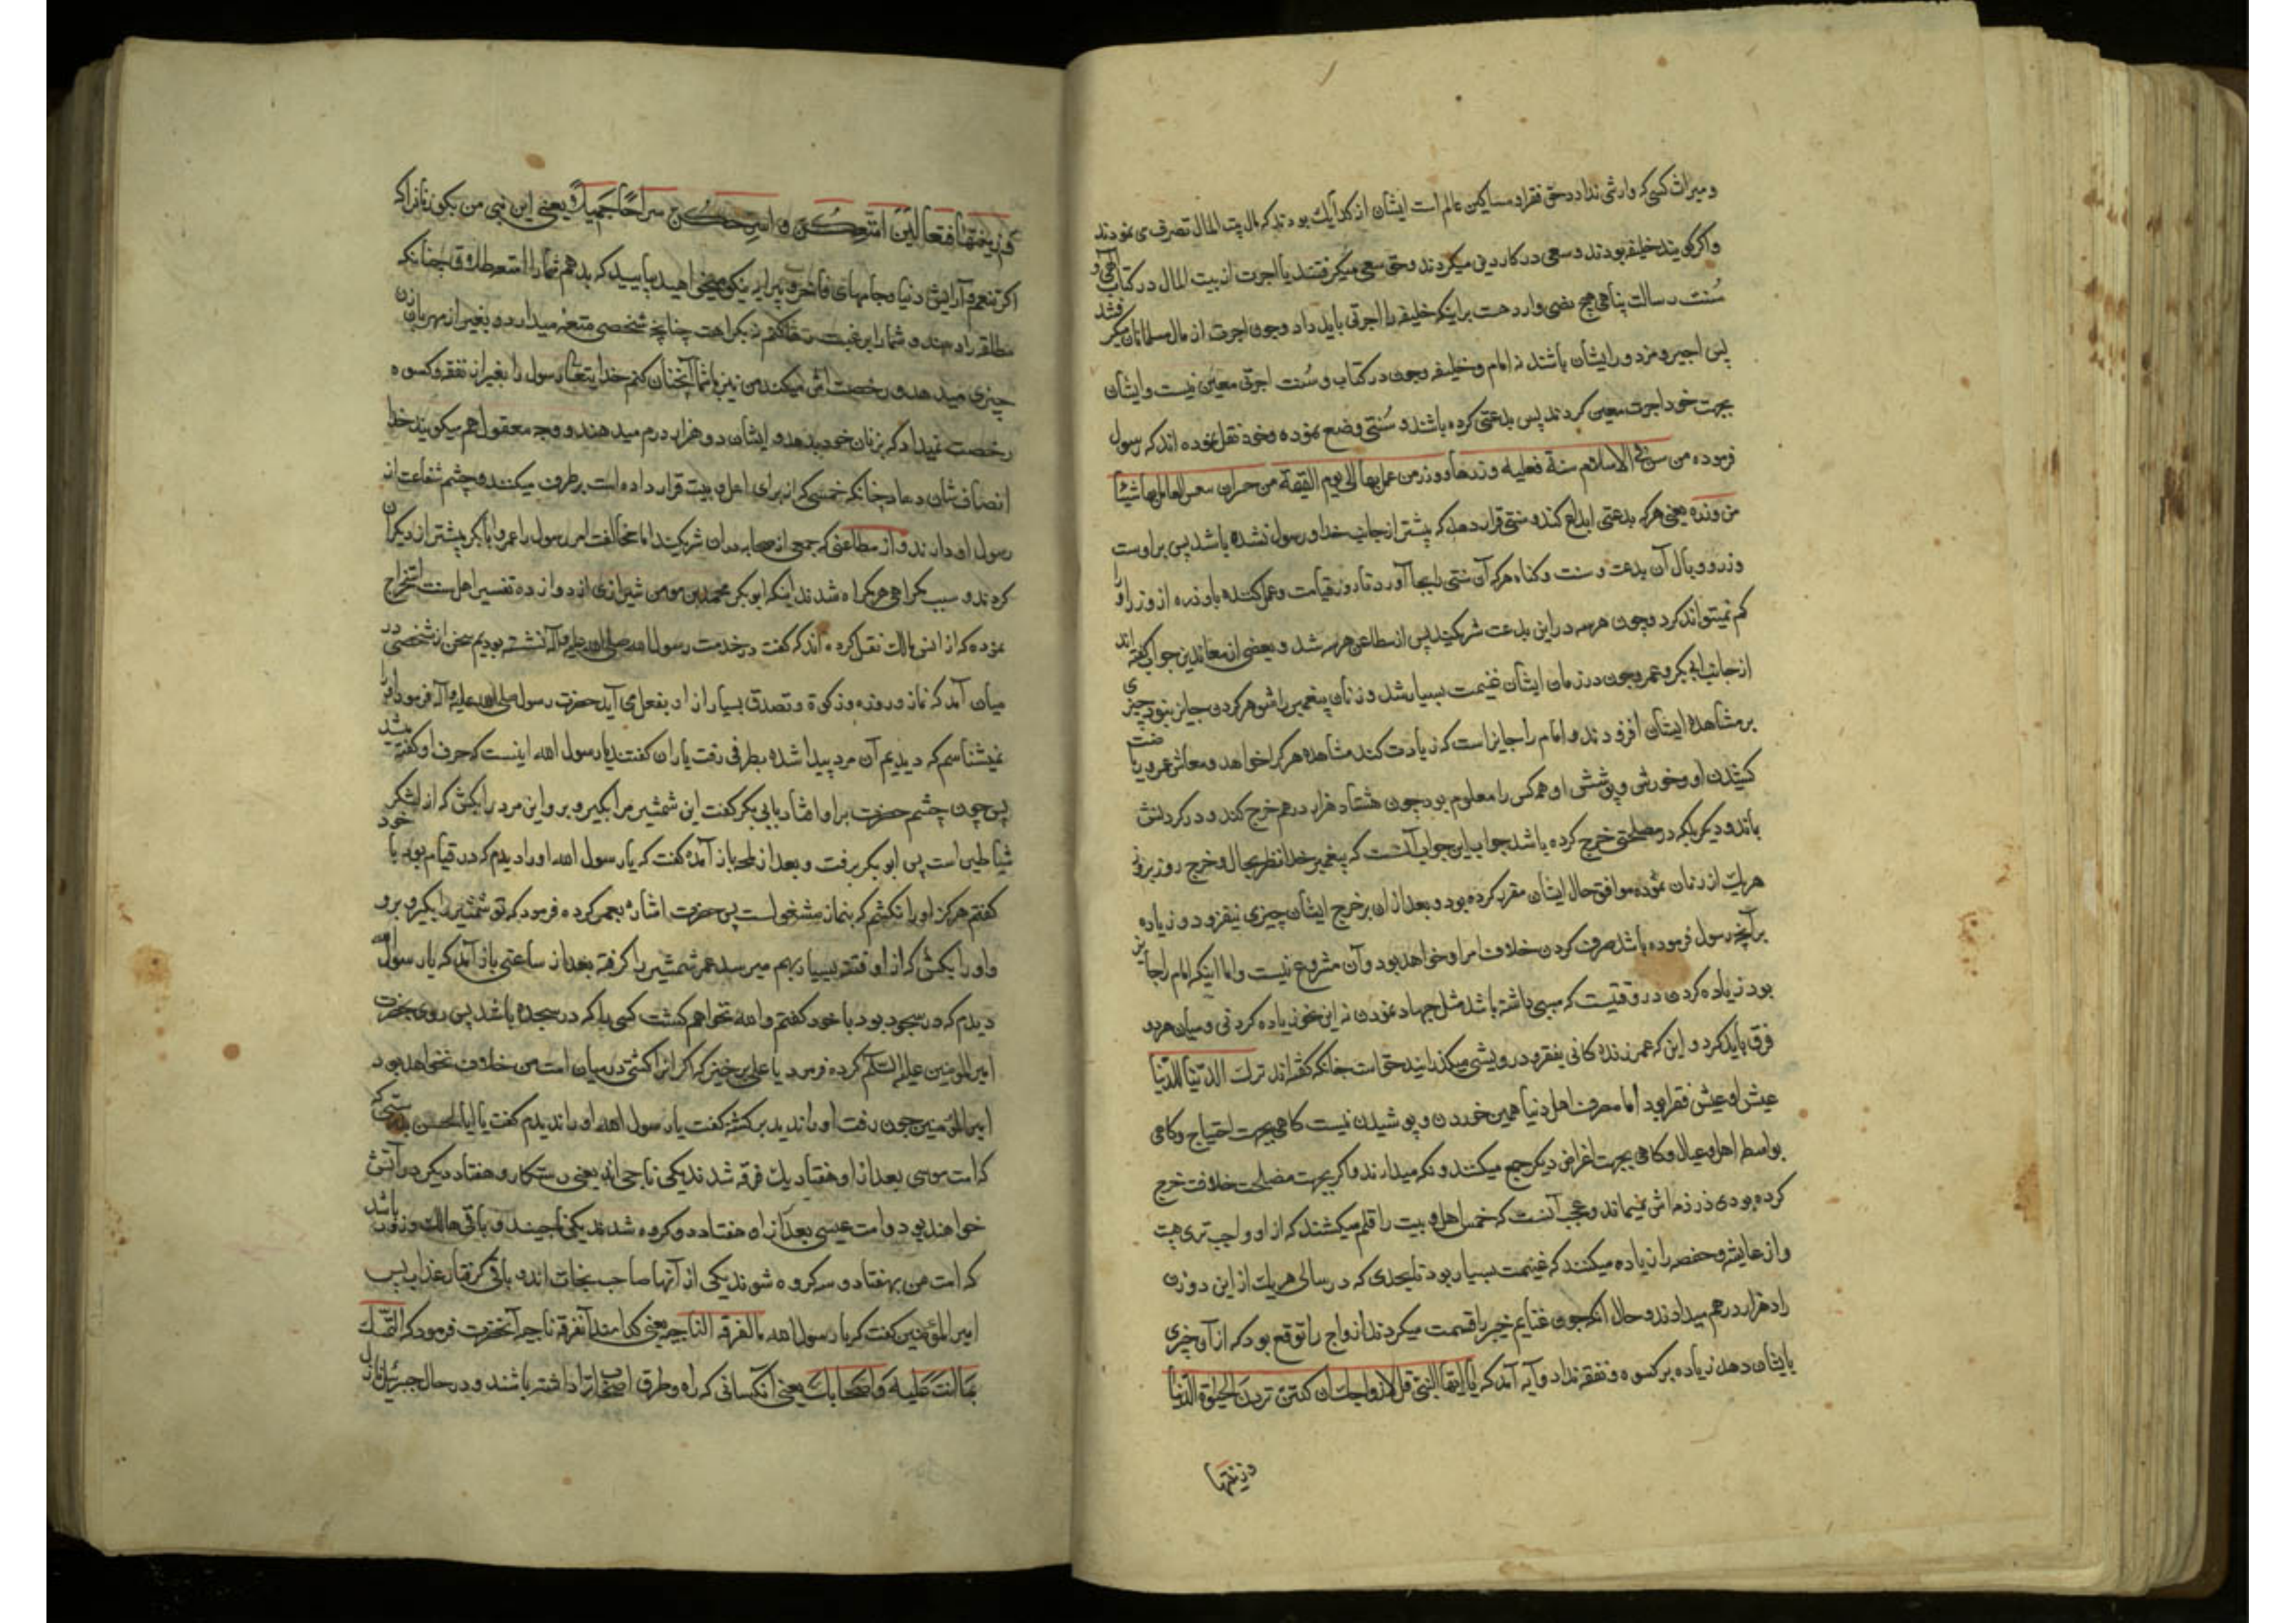 و میراث کسی که وارثی ندارد حق فقرا و مساکین عالم است ایشان از کدام یک بودند که مال بیت المال تصرف می نمودند
و اگر گویند خلیفه بودند و سعی در کار دین میکردند و حق سعی میگرفتند یا اجرت از بیت المال در کتاب الهی و
سُنت رسالت پناهی هیچ نصی وارد هست بر اینکه خلیفه را اجرتی باید داد و چون اجرت از مال مسلمانان میگرفتند
پس اجیر و مزدور ایشان باشند نه امام و خلیفه و چون در کتاب و سُنت اجرتی معین نیست و ایشان
بجهت خود اجرت معین کردند پس بدعتی کرده باشند و سُنتی وضع نموده و خود نقل نموده اند که رسول
فرموده من سن فی الاسلام سنة فعلیه وزرها و وزر من عمل بها الی یوم القیمة من غیر ان العامل بها شیئاً
من وزره یعنی هر که بدعتی ابداع کند و سنتی قرار دهد که پیشتر از جانب خدا و رسول نشده باشد پس بر اوست
وزر و وبال آن بدعت و سنت و گناه هر که آن سنتی را بجا آورد تا روز قیامت و عمل کننده باو ذره از وزر او را
کم نمیتواند کرد و چون هر سه در این بدعت شریکند پس از مطاعن هر سه شد و بعضی از معاندین جواب گفته اند
از جانب ابی بکر و عمر و چون در زمان ایشان غنیمت بسیار شد و زنان پیغمبر را شوهر کردن جایز نبود چیزی
بر مشاهده ایشان افزودند و امام را جایز است که زیادت کند مشاهده هر که را خواهد و معاش عمر و ریاضت
کشیدن او و خورش و پوشش او همه کس را معلوم بود چون هشتاد هزار درهم خرج کند و در گردنش
بماند و دیگر بلکه در مصلحتی خرج کرده باشد جواب این جواب آنست که پیغمبر خدا نظر بحال و خرج روز بروز
هر یک از زنان نموده موافق حال ایشان مقرر کرده بود و بعد از ان بر خرج ایشان چیزی نیفزود و زیاده
بر آنچه رسول فرموده باشد صرف کردن خلاف امر او خواهد بود و آن مشروع نیست و اما اینکه امام را جایز
بود زیاده کردن در وقتیست که سببی داشته باشد مثل جهاد نمودن نه این نحو زیاده کردنی و میان هر دو
فرق باید کرد و این که عمر زنده کانی بفقر و درویشی میگذرانید حق است چنانکه گفته اند ترک الدّنیا للدّنیا
عیش او عیش فقرا بود اما مصرف اهل دنیا همین خوردن و پوشیدن نیست گاهی بجهت احتیاج و گاهی
بواسطه اهل و عیال و گاهی بجهت اغراض دیگر جمع میکنند و نگه میدارند و اگر بجهت مصلحت خلافت خرج
کرده بودی در ذمه اش نمیماند و عجب آنست که خمس اهل بیت را قلم میکشند که از او واجب تری هست
و از عایشه و حفصه را زیاده میکنند که غنیمت بسیار بود تا بحدی که در سالی هر یک از این دو زن
را ده هزار درهم میدادند و حال آنکه چون غنایم خیبر را قسمت میکردند ازواج را توقع بود که از آن چیزی
بایشان دهد زیاده بر کسوه و نفقه نداد و آیه آمد که یا ایّها النّبیّ قل لازواجک ان کنتنّ تردن الحیوة الدّنیا
وزینتها
وزینتها فتعالین امتّعکنّ و اسرّحکنّ سراحاً جمیلاً یعنی ای نبی من بگو زنان را که
اگر تنعم و آرایش دنیا و جامهای فاخر و پیرایه نیکو میخواهید بیایید که بدهم شما را متعه طلاق چنانکه
مطلقه را دهند و شما را برغبت رها کنم دیگر اهت چنانچه شخصی متعه میدارد و بغیر از مهر بآن زن
چیزی میدهد و رخصت اش میکند من نیز با شما آنچنان کنم خدایتعالی رسول را بغیر از نفقه و کسوه
رخصت نمیداد که بزنان خود بدهد و ایشان دو هزار درم میدهند و وجه معقول هم میگویند خدا
انصاف شان دهاد چنانکه خمسی که از برای اهل بیت قرار داده است برطرف میکنند و چشم شفاعت از
رسول او دارند و از مطاعنی که جمعی از صحابه در ان شریکند اما مخالفت امر رسول را عمر و ابابکر بیشتر از دیگران
کردند و سبب گمراهی هر گمراه شدند اینکه ابو بکر محمد بن مومن شیرازی از دوازده تفسیر اهل سنت استخراج
نموده که از انس مالک نقل کرده اند که گفت در خدمت رسول الله صلی الله علیه و آله نشسته بودیم سخن از شخصی در
میان آمد که نماز و روزه و زکوة و تصدق بسیار از او بفعل می آید حضرت رسول صلی الله علیه و آله فرمود او را
نمیشناسم که دیدیم آن مرد پیدا شده بطرفی رفت یاران گفتند یا رسول الله اینست که حرف او گفته میشد
پس چون چشم حضرت بر او افتاد بابی بکر گفت این شمشیر مرا بگیر و برو این مرد را بکش که از لشکر
شیاطین است پس ابو بکر برفت و بعد از لمحه باز آمده گفت که یا رسول الله او را دیدم که در قیام بود با خود
گفتم هرگز او را نکشم که بنماز مشغول است پس حضرت اشاره بعمر کرده فرمود که تو شمشیر را بگیر و برو
و او را بکش که از او فتنه بسیار بهم میرسد عمر شمشیر را گرفته بعد از ساعتی باز آمد که یا رسول الله
دیدم که در سجود بود با خود گفتم و الله نخواهم کشت کسی را که در سجده باشد پس روی بحضرت
امیر المومنین علیه السلام کرده فرمود یا علی برخیز که اگر او را کشتی در میان امت من خلاف نخواهد بود
امیر المؤمنین چون رفت او را ندید برگشته گفت یا رسول الله او را ندیدم گفت یا ابا الحسن بدرستی که
که امت موسی بعد از او هفتاد یک فرقه شدند یکی ناجی اند یعنی رستکار و هفتاد دیگر در آتش
خواهند بود و امت عیسی بعد از او هفتاد دو گروه شدند یکی ناجیند و باقی هالک و زود باشد
که امت من بهفتاد و سه گروه شوند یکی از آنها صاحب نجات اند و باقی گرفتار عذاب پس
امیر المؤمنین گفت که یا رسول الله ما الفرقة الناجیه یعنی کدامند آنفرقه ناجیه آنحضرت فرمود که التمسّک
بما انت علیه و اصحابک یعنی آنکسانی که راه و طرق اصحاب ترا داشته باشند و در حال جبرئیل نازل